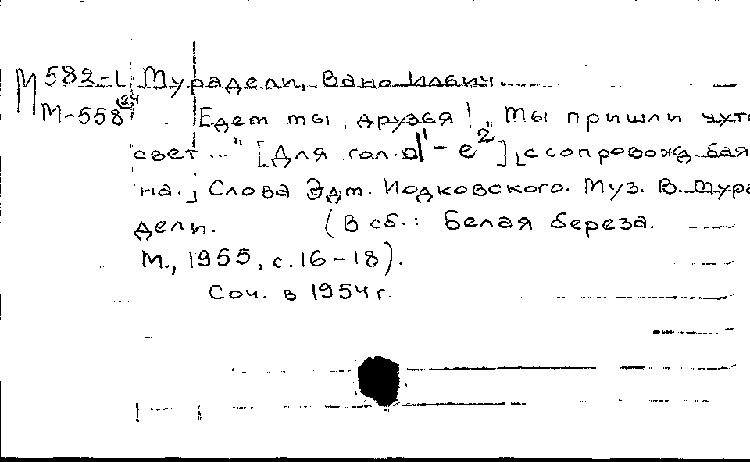 М 582-L Мурадели, Вано Ильич.
М-558 Едем мы, друзья! "Мы пришли чуть
свет..." [Для гол. d¹-e²] [с сопровожд. бая
на.] Слова Эдм. Иодковского. Муз. В. Мура
дели. (В сб.: Белая береза.
М., 1955, с. 16-18).
Соч. в 1954 г.